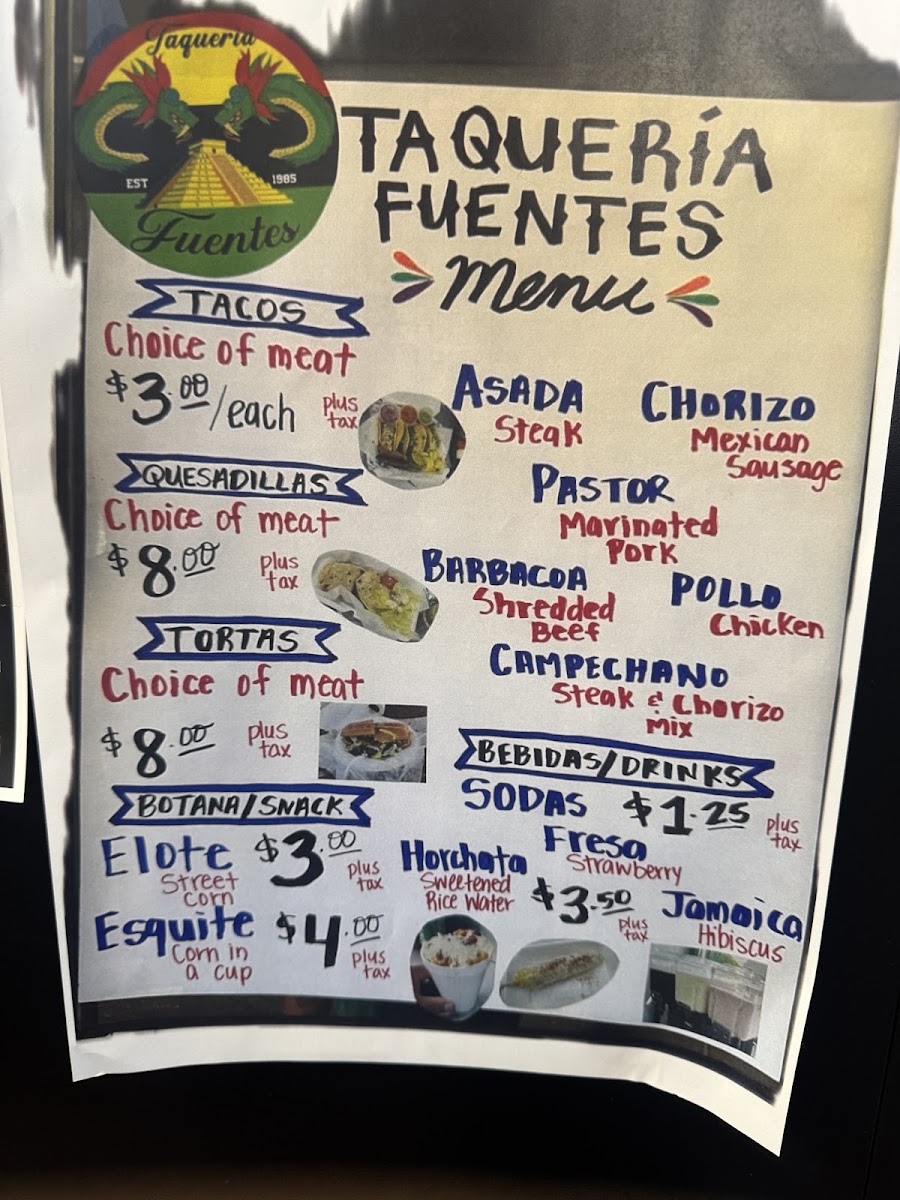 Taqueria
EST 1985
Fuentes
TAQUERÍA
FUENTES
Menu
TACOS
Choice of meat
$3.00/each plus
tax
QUESADILLAS
Choice of meat
$8.00 plus
tax
TORTAS
Choice of meat
$8.00 plus
tax
ASADA
Steak
CHORIZO
Mexican
Sausage
PASTOR
Marinated
Pork
BARBACOA
Shredded
Beef
POLLO
Chicken
CAMPECHANO
Steak & Chorizo
Mix
BOTANA/SNACK
Elote $3.00 plus
tax
Street
Corn
Esquite $4.00 plus
tax
Corn in
a cup
BEBIDAS/DRINKS
SODAS $1.25 plus
tax
Horchata
Sweetened
Rice Water
Fresa
Strawberry
$3.50
plus
tax
Jamaica
Hibiscus